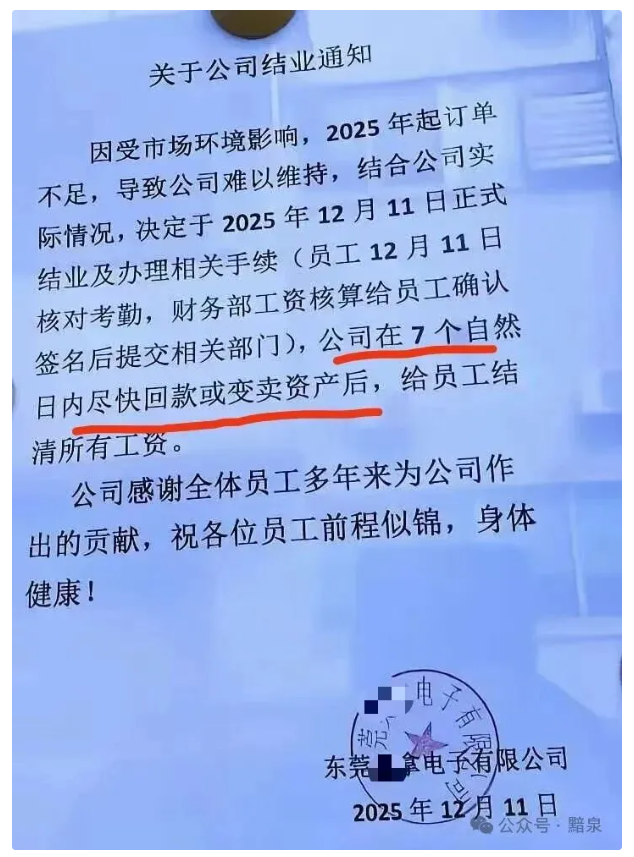 关于公司结业通知
因受市场环境影响，2025年起订单
不足，导致公司难以维持，结合公司实
际情况，决定于2025年12月11日正式
结业及办理相关手续（员工12月11日
核对考勤，财务部工资核算给员工确认
签名后提交相关部门），公司在7个自然
日内尽快回款或变卖资产后，给员工结
清所有工资。
公司感谢全体员工多年来为公司作
出的贡献，祝各位员工前程似锦，身体
健康！
莞 电子有限公司
东莞 拿电子有限公司
2025年12月11日
公众号·黯泉